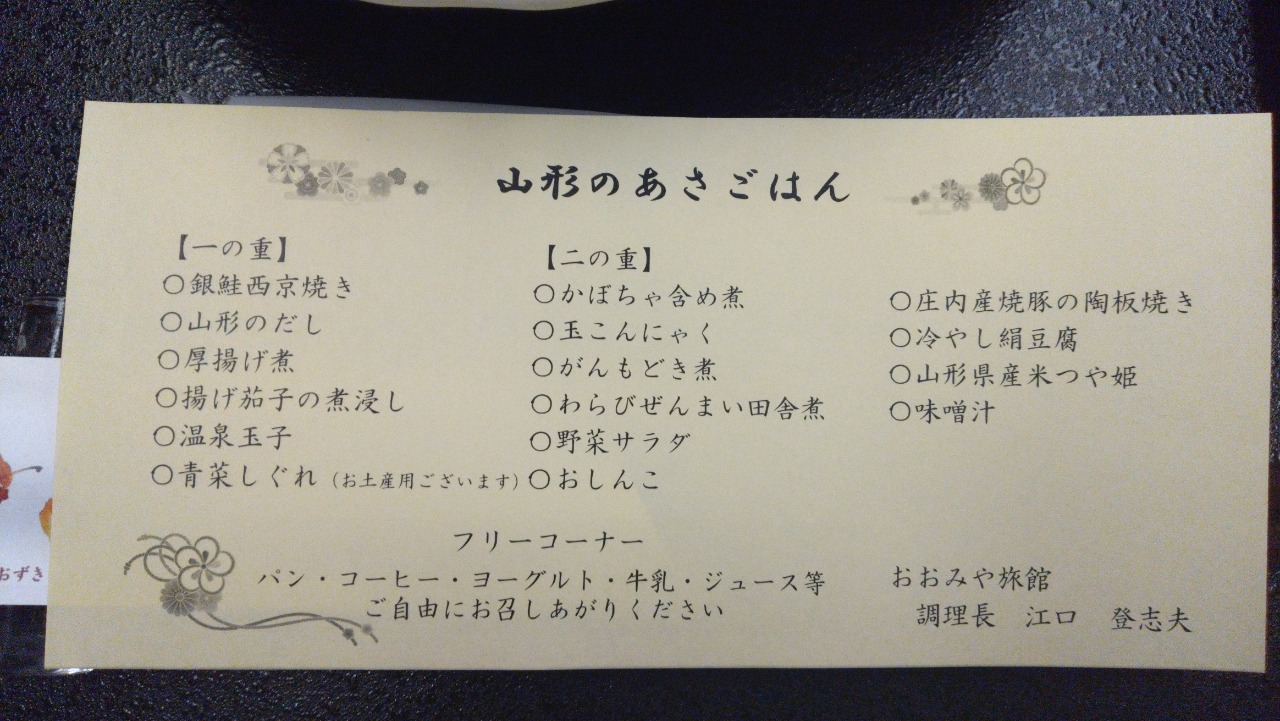 山形のあさごはん
【一の重】
○銀鮭西京焼き
○山形のだし
○厚揚げ煮
○揚げ茄子の煮浸し
○温泉玉子
○青菜しぐれ（お土産用ございます）
【二の重】
○かぼちゃ含め煮
○玉こんにゃく
○がんもどき煮
○わらびぜんまい田舎煮
○野菜サラダ
○おしんこ
○庄内産焼豚の陶板焼き
○冷やし絹豆腐
○山形県産米つや姫
○味噌汁
フリーコーナー
パン・コーヒー・ヨーグルト・牛乳・ジュース等
ご自由にお召しあがりください
おおみや旅館
調理長　江口　登志夫
おずき